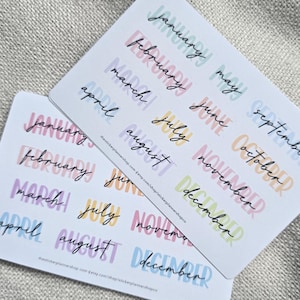 JANUARY
january
FEBRUARY
february
MAY
may
MARCH
march
JUNE
june
SEPTEMB
septemb
APRIL
april
JULY
july
OCTOBER
october
AUGUST
august
NOVEMBER
november
DECEMBER
december
JANUARY
january
FEBRUARY
february
JUN
jun
MARCH
march
JULY
july
NOVEM
novem
APRIL
april
AUGUST
august
DECEMBER
december